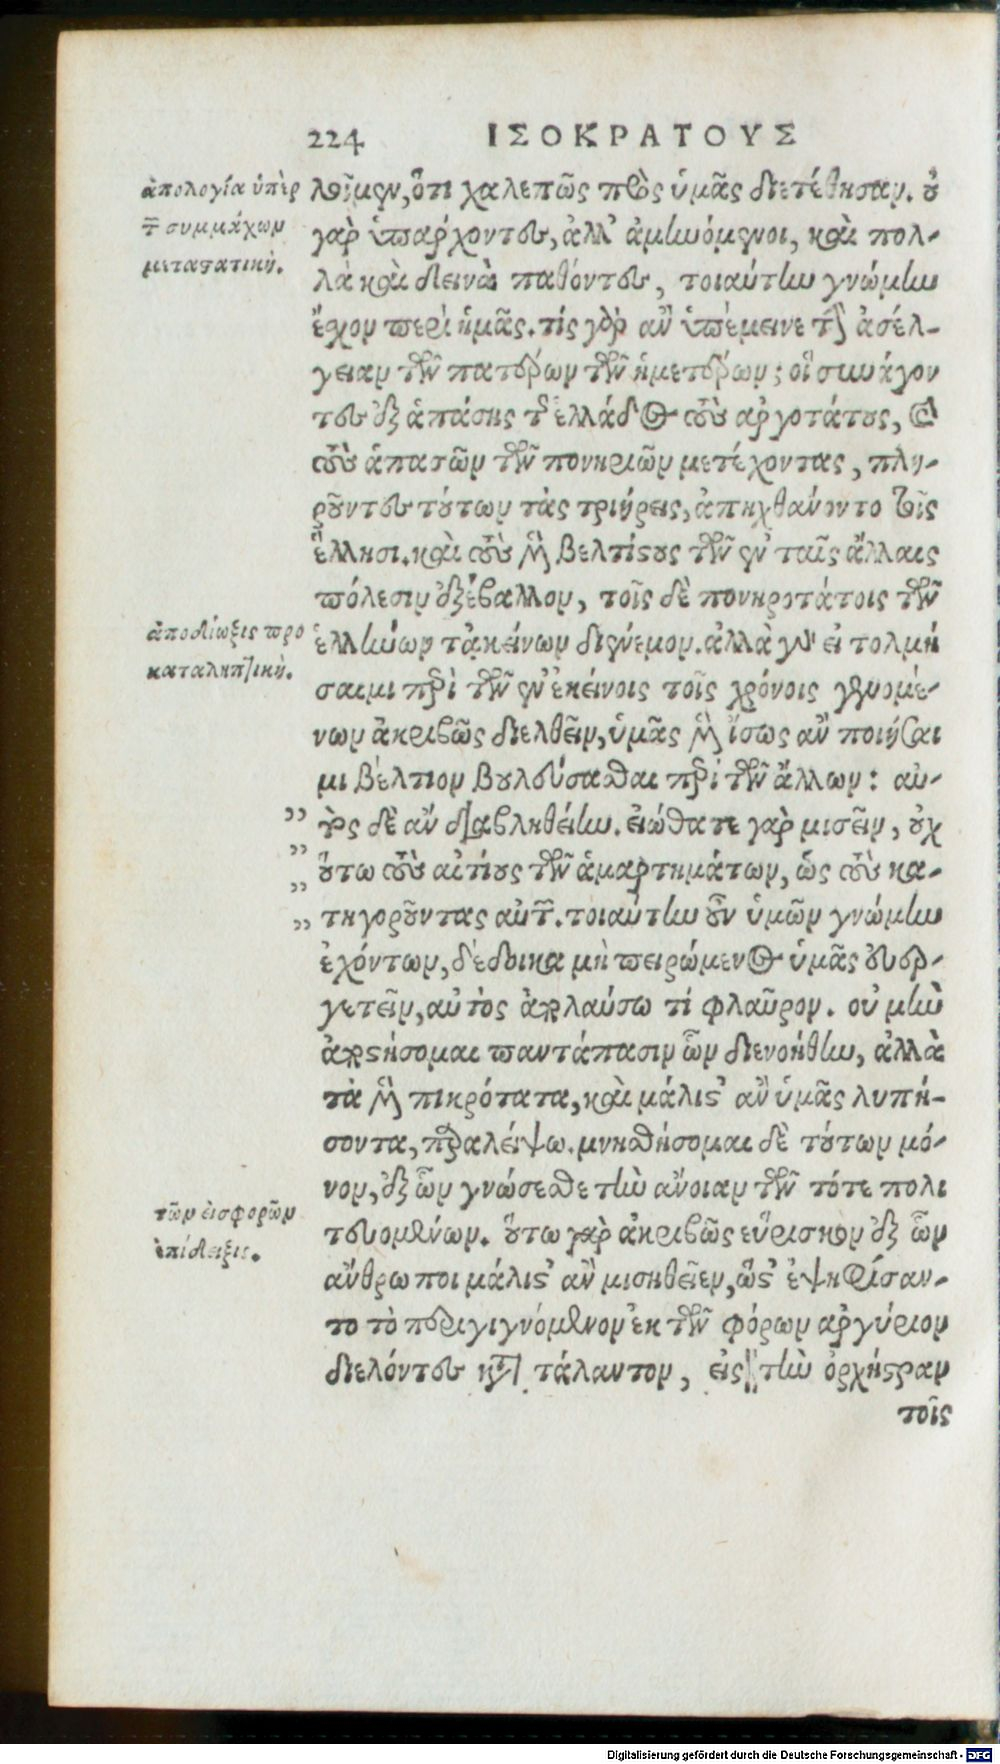 224 ΙΣΟΚΡΑΤΟΥΣ
ἀπολογία ὑπὲρ
τ̅ συμμάχων
μεταστατική.
λοῖμεν, ὅτι χαλεπῶς πρὸς ὑμᾶς διετέθησαν. οὐ
γὰρ ὑπάρχοντες, ἀλλ' ἀμυνόμενοι, καὶ πολ-
λὰ καὶ δεινὰ παθόντες, τοιαύτην γνώμην
ἔχον περὶ ἡμᾶς. τίς γὰρ ἂν ὑπέμεινε τὴν ἀσέλ-
γειαν τῶν πατέρων τῶν ἡμετέρων; οἳ συνάγον
τες ἐξ ἁπάσης τῆς ἑλλάδος τοὺς ἀργοτάτους, καὶ
τοὺς ἁπασῶν τῶν πονηριῶν μετέχοντας, πλη-
ροῦντες τούτων τὰς τριήρεις, ἀπηχθάνοντο τοῖς
ἕλλησι. καὶ τοὺς μὲν βελτίστους τῶν ἐν ταῖς ἄλλαις
πόλεσιν ἐξέβαλλον, τοῖς δὲ πονηροτάτοις τῶν
ἀποδίωξις προ
καταληπτική.
ἑλλήνων τἀκείνων διένεμον. ἀλλὰ γὰρ εἰ τολμή
σαιμι περὶ τῶν ἐν ἐκείνοις τοῖς χρόνοις γενομέ-
νων ἀκριβῶς διελθεῖν, ὑμᾶς μὲν ἴσως ἂν ποιήσαι
μι βέλτιον βουλεύσασθαι περὶ τῶν ἄλλων: αὐ-
τὸς δὲ ἂν διαβληθείην. εἰώθατε γὰρ μισεῖν, οὐχ
οὕτω τοὺς αἰτίους τῶν ἁμαρτημάτων, ὡς τοὺς κα-
τηγοροῦντας αὐτῶν. τοιαύτην οὖν ὑμῶν γνώμην
ἐχόντων, δέδοικα μὴ πειρώμενος ὑμᾶς εὐερ-
γετεῖν, αὐτὸς ἀπολαύσω τί φλαῦρον. οὐ μὴν
ἀποστήσομαι παντάπασιν ὧν διενοήθην, ἀλλὰ
τὰ μὲν πικρότατα, καὶ μάλιστ' ἂν ὑμᾶς λυπή-
σοντα, παραλείψω. μνησθήσομαι δὲ τούτων μό-
νον, ἐξ ὧν γνώσεσθε τὴν ἄνοιαν τῶν τότε πολι
τῶν εἰσφορῶν
ἐπίδειξις.
τευομένων. οὕτω γὰρ ἀκριβῶς εὕρισκον ἐξ ὧν
ἄνθρωποι μάλιστ' ἂν μισηθεῖεν, ὥστ' ἐψηφίσαν-
το τὸ περιγιγνόμενον ἐκ τῶν φόρων ἀργύριον
διελόντες κατὰ τάλαντον, εἰς τὴν ὀρχήστραν
τοῖς
Digitalisierung gefördert durch die Deutsche Forschungsgemeinschaft - DFG